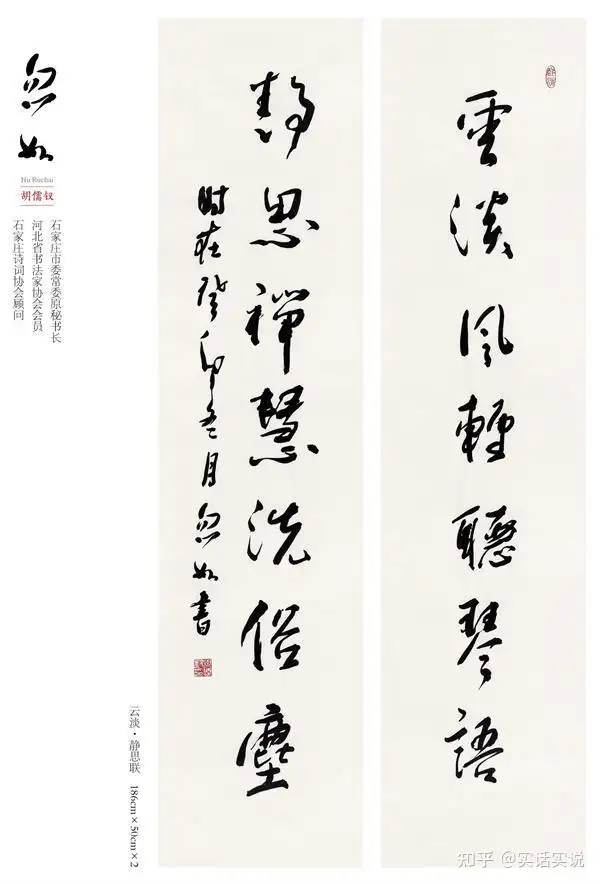 雲淡風輕聽琴語
静思禅慧洗俗塵
時在癸卯冬月忽如書
忽如
Hu Ruchai
胡儒钗
石家庄市委常委原秘书长
河北省书法家协会会员
石家庄诗词协会顾问
云淡·静思联 186cm×50cm×2
知乎 @实话实说